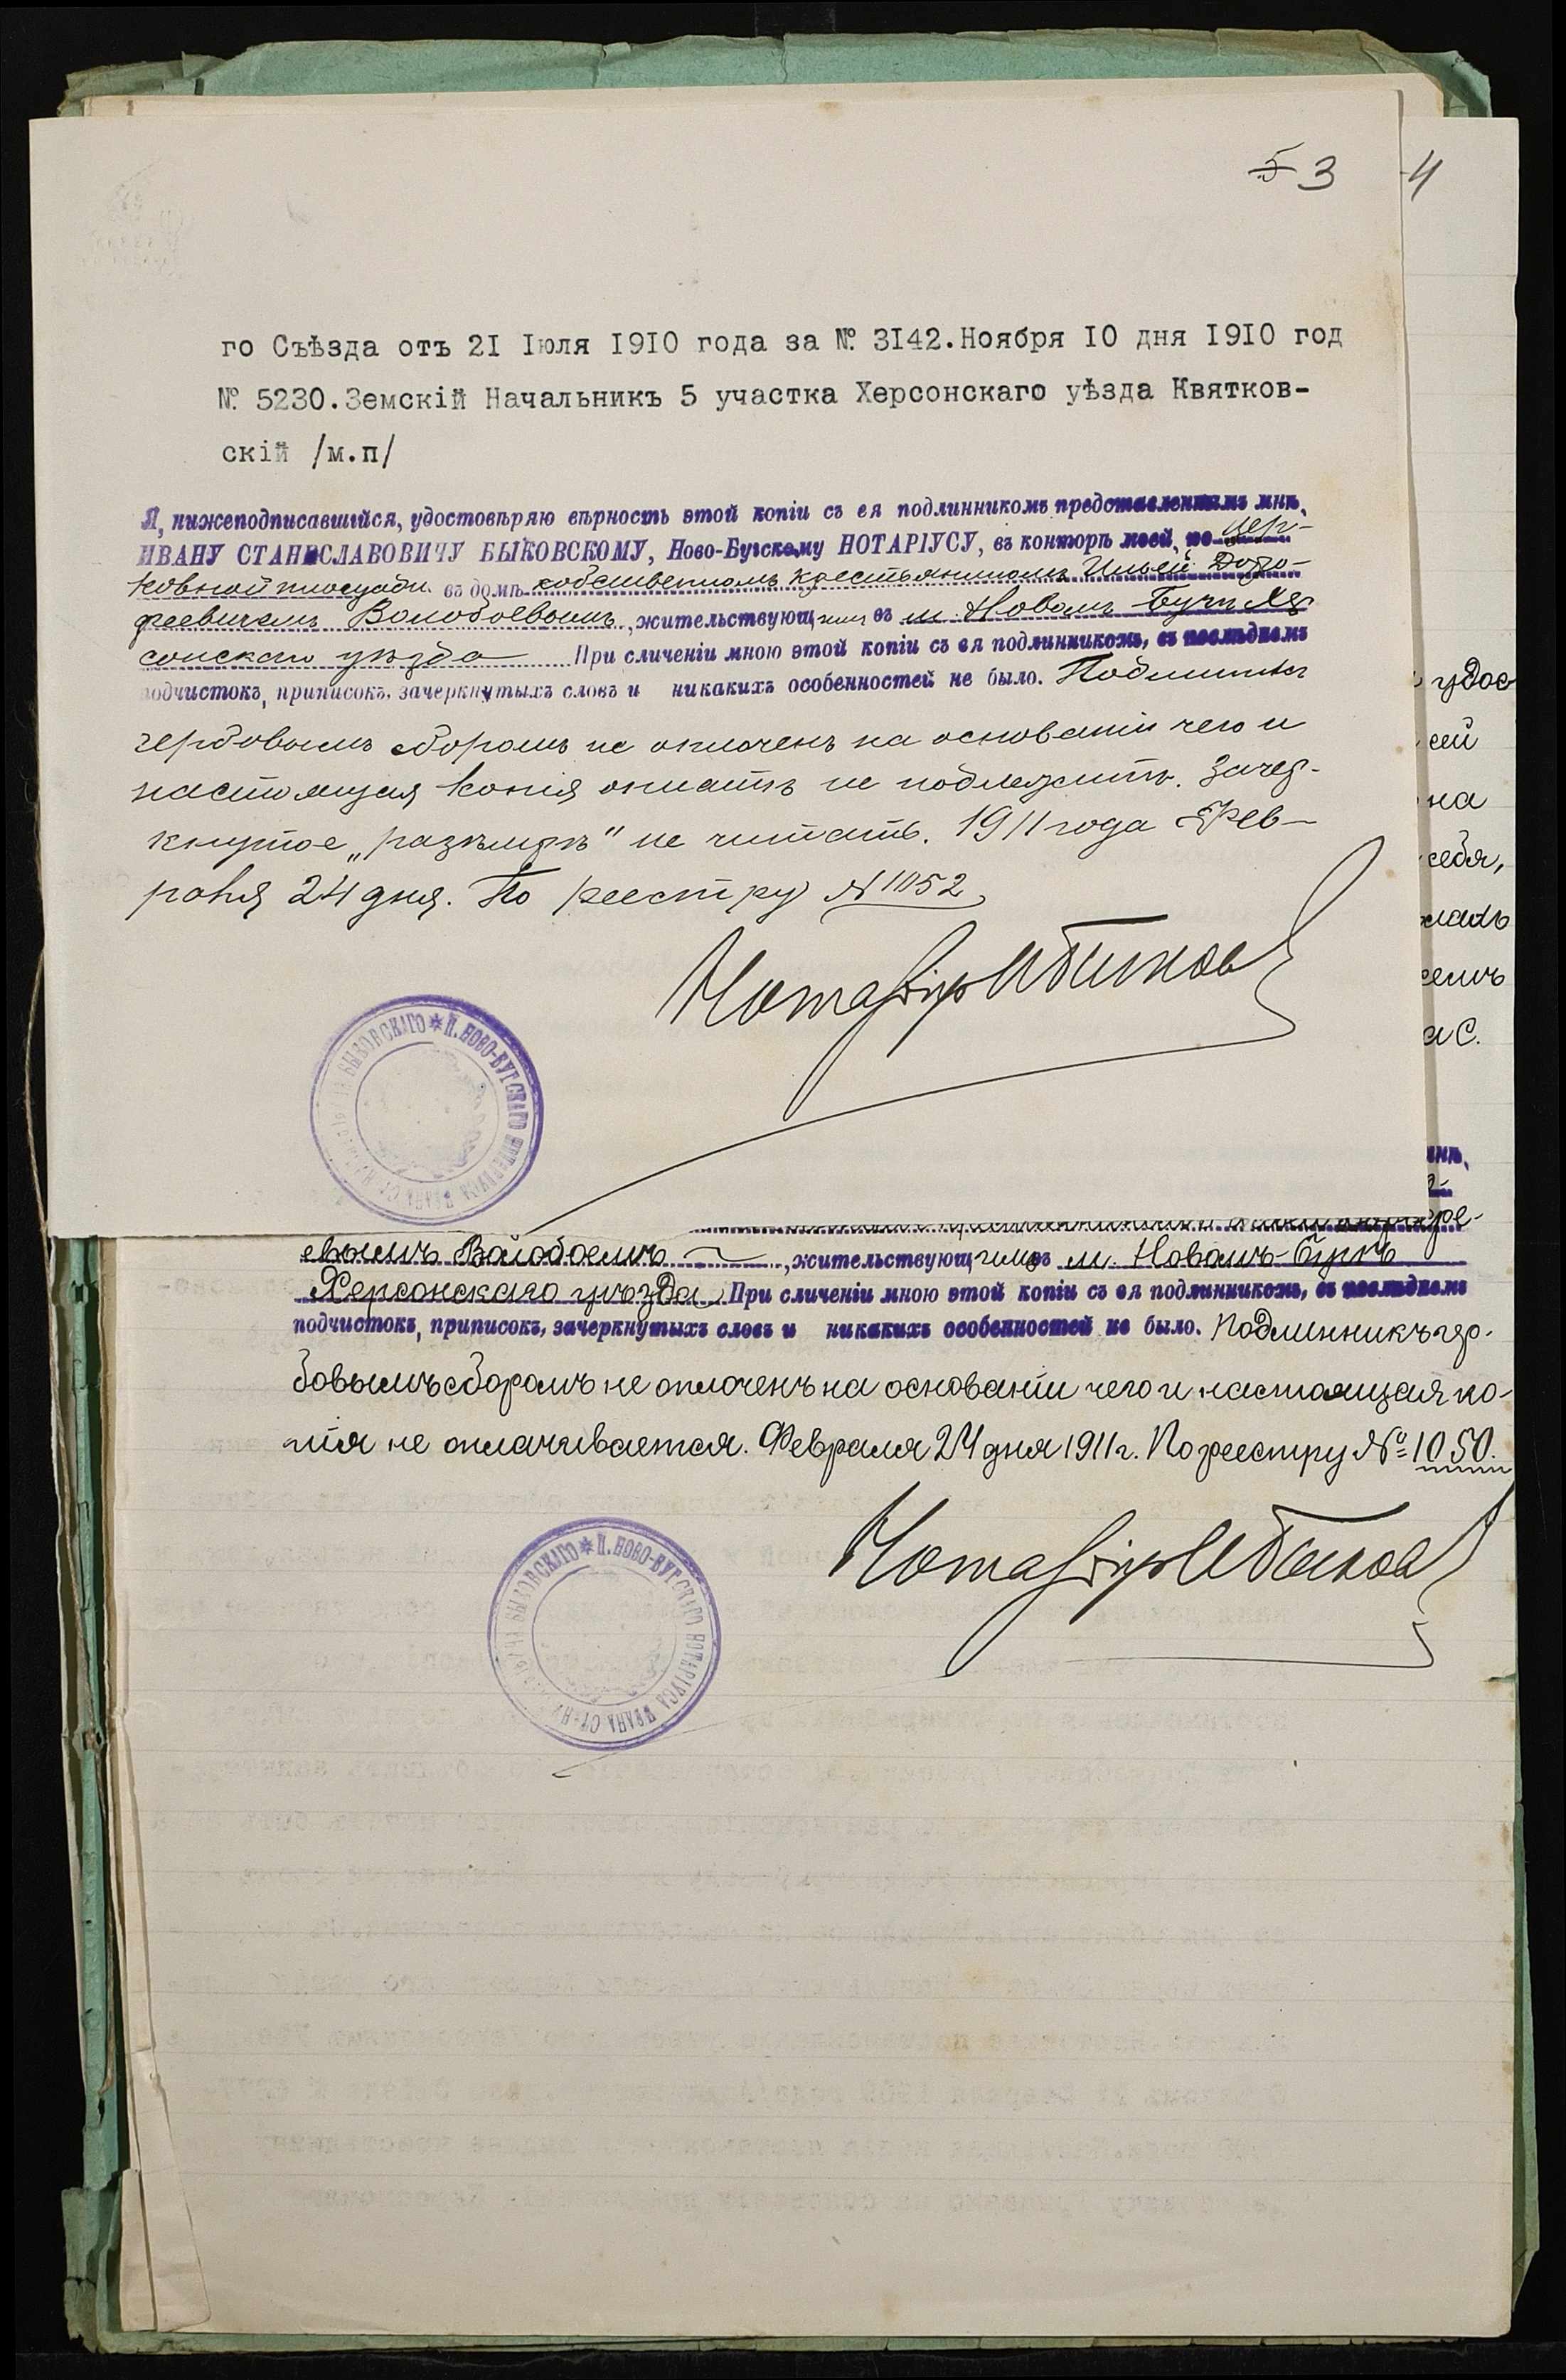 5 3
4
го Съѣзда отъ 21 Іюля 1910 года за № 3142.Ноября 10 дня 1910 год
№ 5230.Земскій Начальникъ 5 участка Херсонскаго уѣзда Квятков-
скій /м.п/
Я, нижеподписавшійся, удостовѣряю вѣрность этой копіи съ ея подлинникомъ представленнымъ мнѣ,
ИВАНУ СТАНИСЛАВОВИЧУ БЫКОВСКОМУ, Ново-Бугскому НОТАРІУСУ, въ конторѣ моей, по Цер-
ковной площади въ домѣ собственномъ крестьяниномъ Ильей Доро-
феевичемъ Волобоевымъ, жительствующимъ въ м. Новомъ Бугѣ Хер
сонскаго уѣзда При сличеніи мною этой копіи съ ея подлинникомъ, въ послѣднемъ
подчистокъ, приписокъ, зачеркнутыхъ словъ и никакихъ особенностей не было. Подлинникъ
гербовымъ сборомъ не оплоченъ на основаніи чего и
настоящая копія оплатѣ не подлежитъ. Зачер-
кнутое „ " не читать. 1911 года Фев-
раля 24 дня. По реестру № 1052
Нотаріусъ И Быков
* П. НОВО-БУГСКАГО НОТАРІУСА ИВАНА СТАНИСЛАВОВИЧА БЫКОВСКАГО
удос
ей
на
себя,
ладъ
а С.
мнѣ,
евымъ Волобоемъ, жительствующимъ въ м. Новомъ-Бугѣ
Херсонскаго уѣзда При сличеніи мною этой копіи съ ея подлинникомъ, въ послѣднемъ
подчистокъ, приписокъ, зачеркнутыхъ словъ и никакихъ особенностей не было. Подлинникъ гер-
бовымъ сборомъ не оплоченъ на основаніи чего и настоящая ко-
пія не оплачивается. Февраля 24 дня 1911 г. По реестру № 1050.
Нотаріусъ И Быков
* П. НОВО-БУГСКАГО НОТАРІУСА ИВАНА СТАНИСЛАВОВИЧА БЫКОВСКАГО